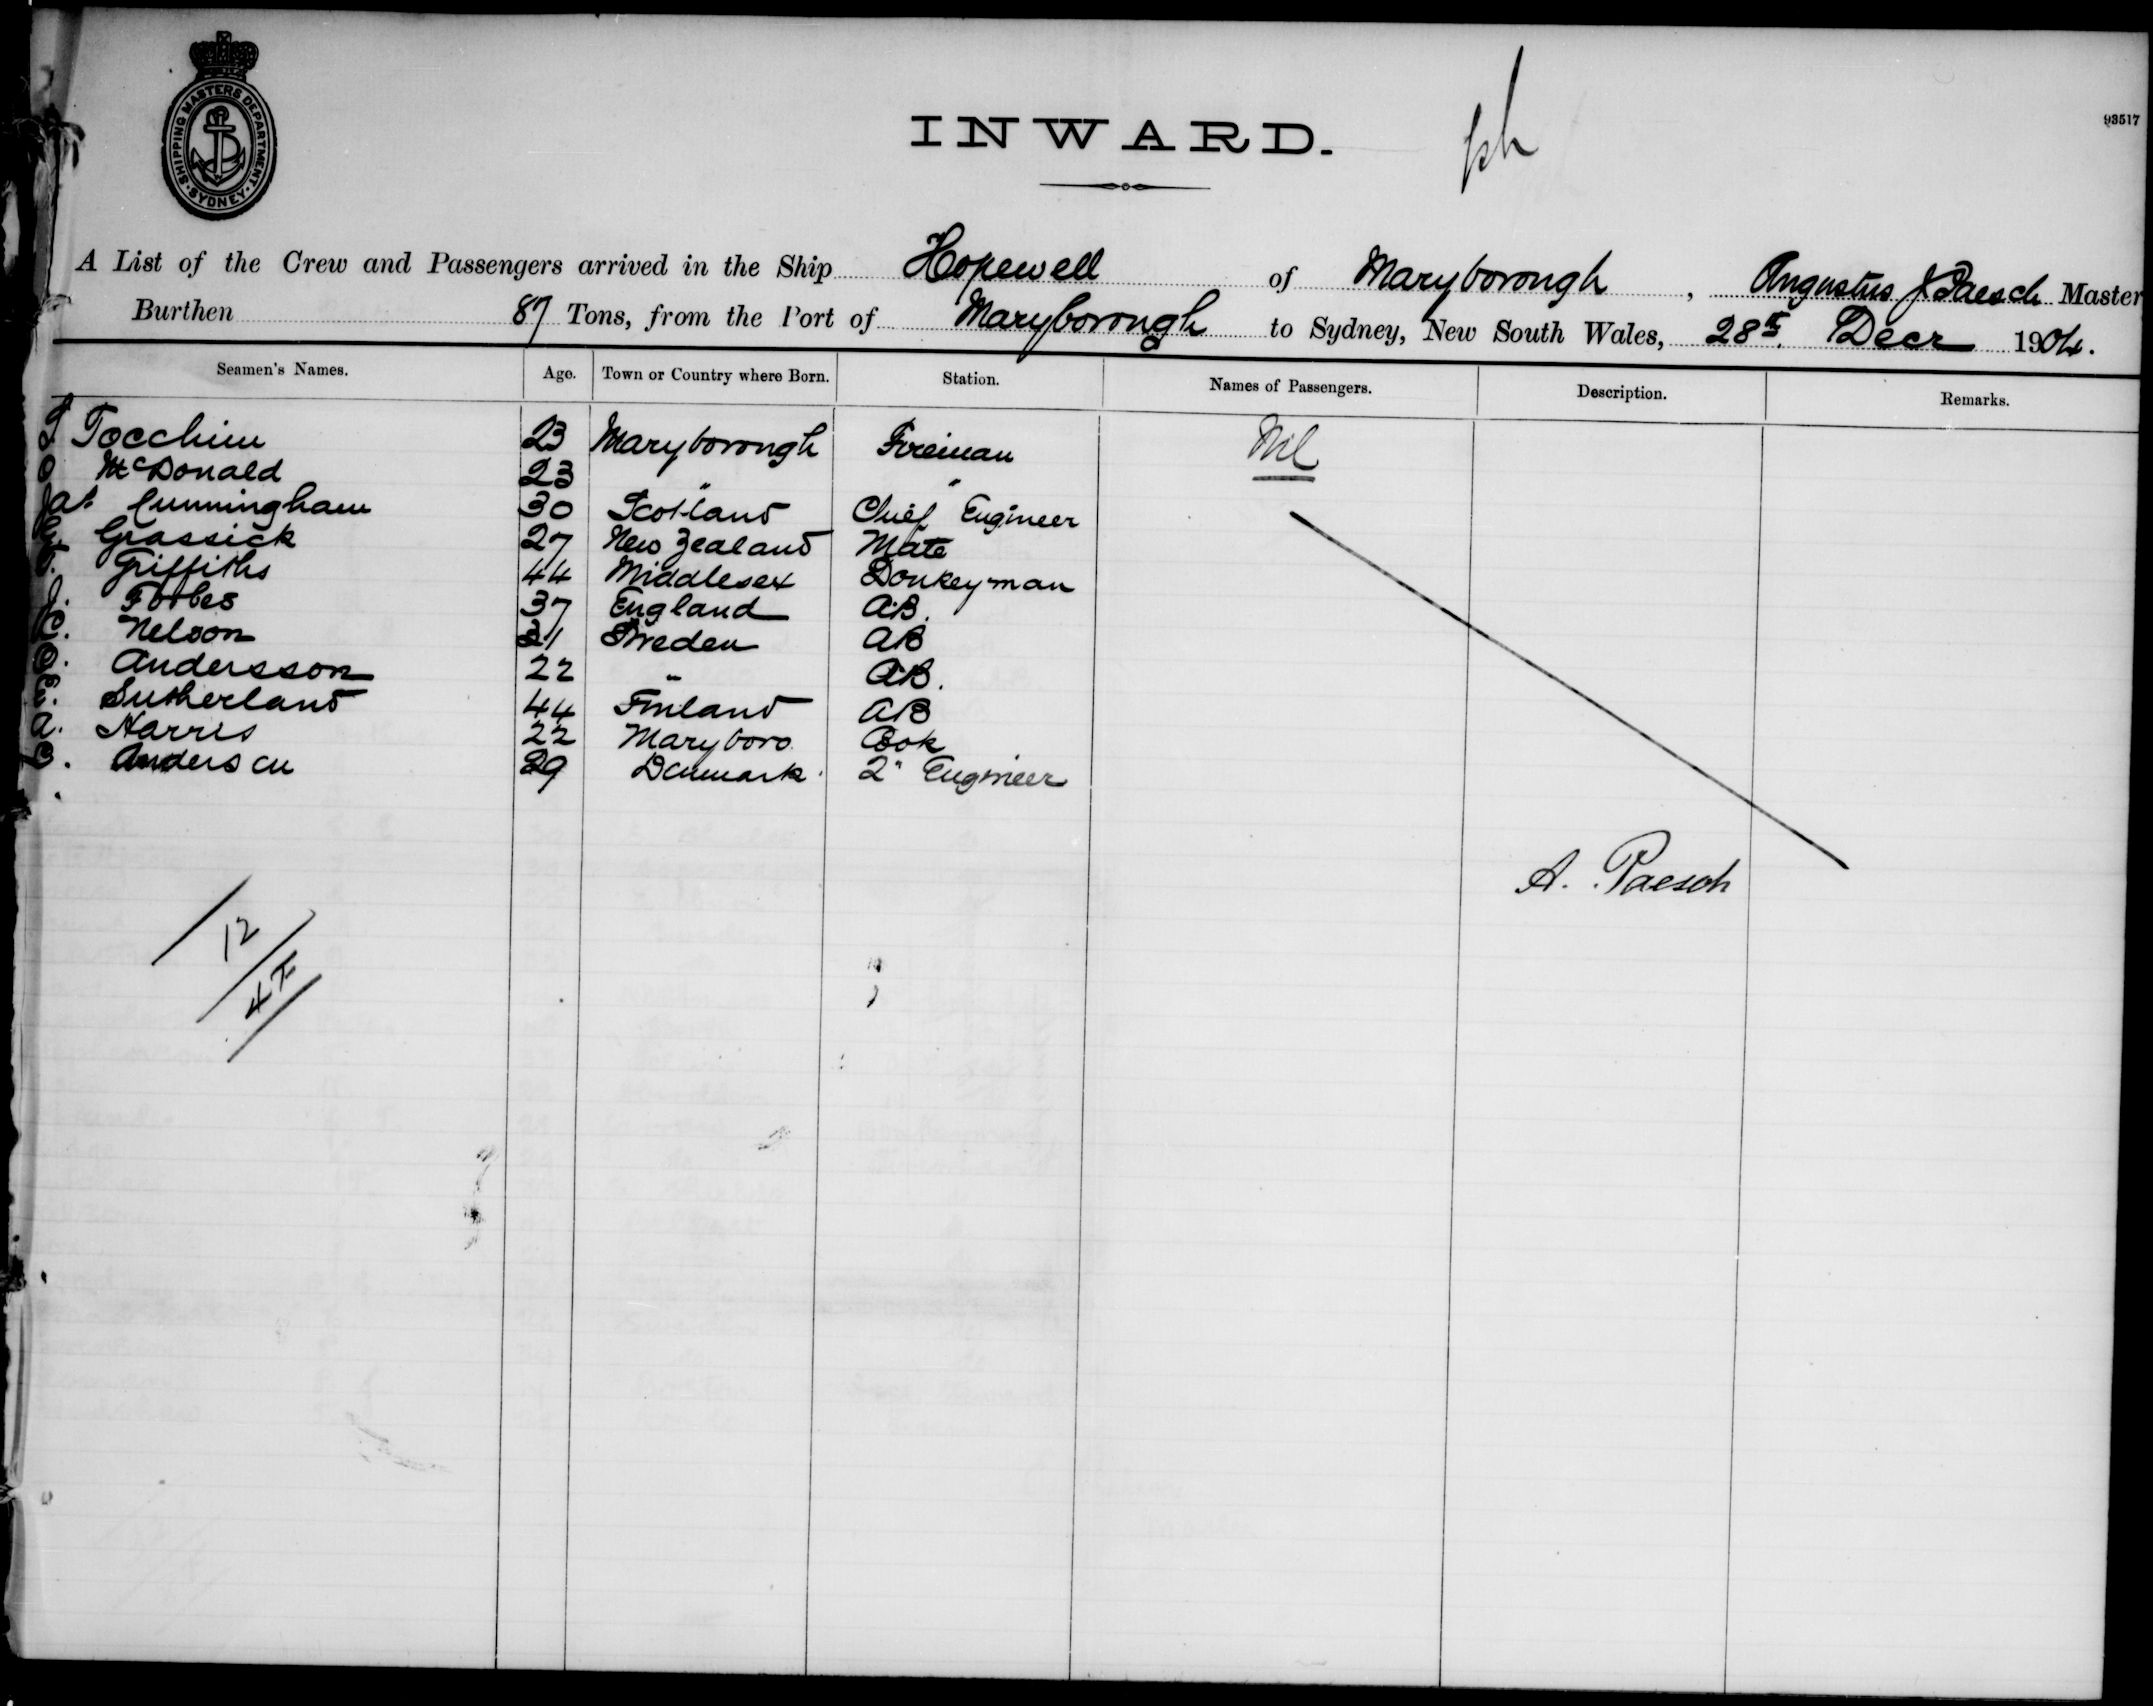 SHIPPING MASTERS DEPARTMENT. SYDNEY
INWARD.
93517
A List of the Crew and Passengers arrived in the Ship Hopewell of Maryborough, Augustus J Paesch Master
Burthen 87 Tons, from the Port of Maryborough to Sydney, New South Wales, 28th Decr 1904.
Seamen's Names. Age. Town or Country where Born. Station. Names of Passengers. Description. Remarks.
Tocchini 23 Maryborough Fireman Nil
O McDonald 23 " "
Jas Cunningham 30 Scotland Chief Engineer
G. Grassick 27 New Zealand Mate
Griffiths 44 Middlesex Donkeyman
J. Forbes 37 England A.B.
C. Nelson 21 Sweden AB
O. Andersson 22 " A.B.
E. Sutherland 44 Finland AB
A. Harris 22 Maryboro Cook
Andersen 29 Denmark. 2" Engineer
A. Paesch
12